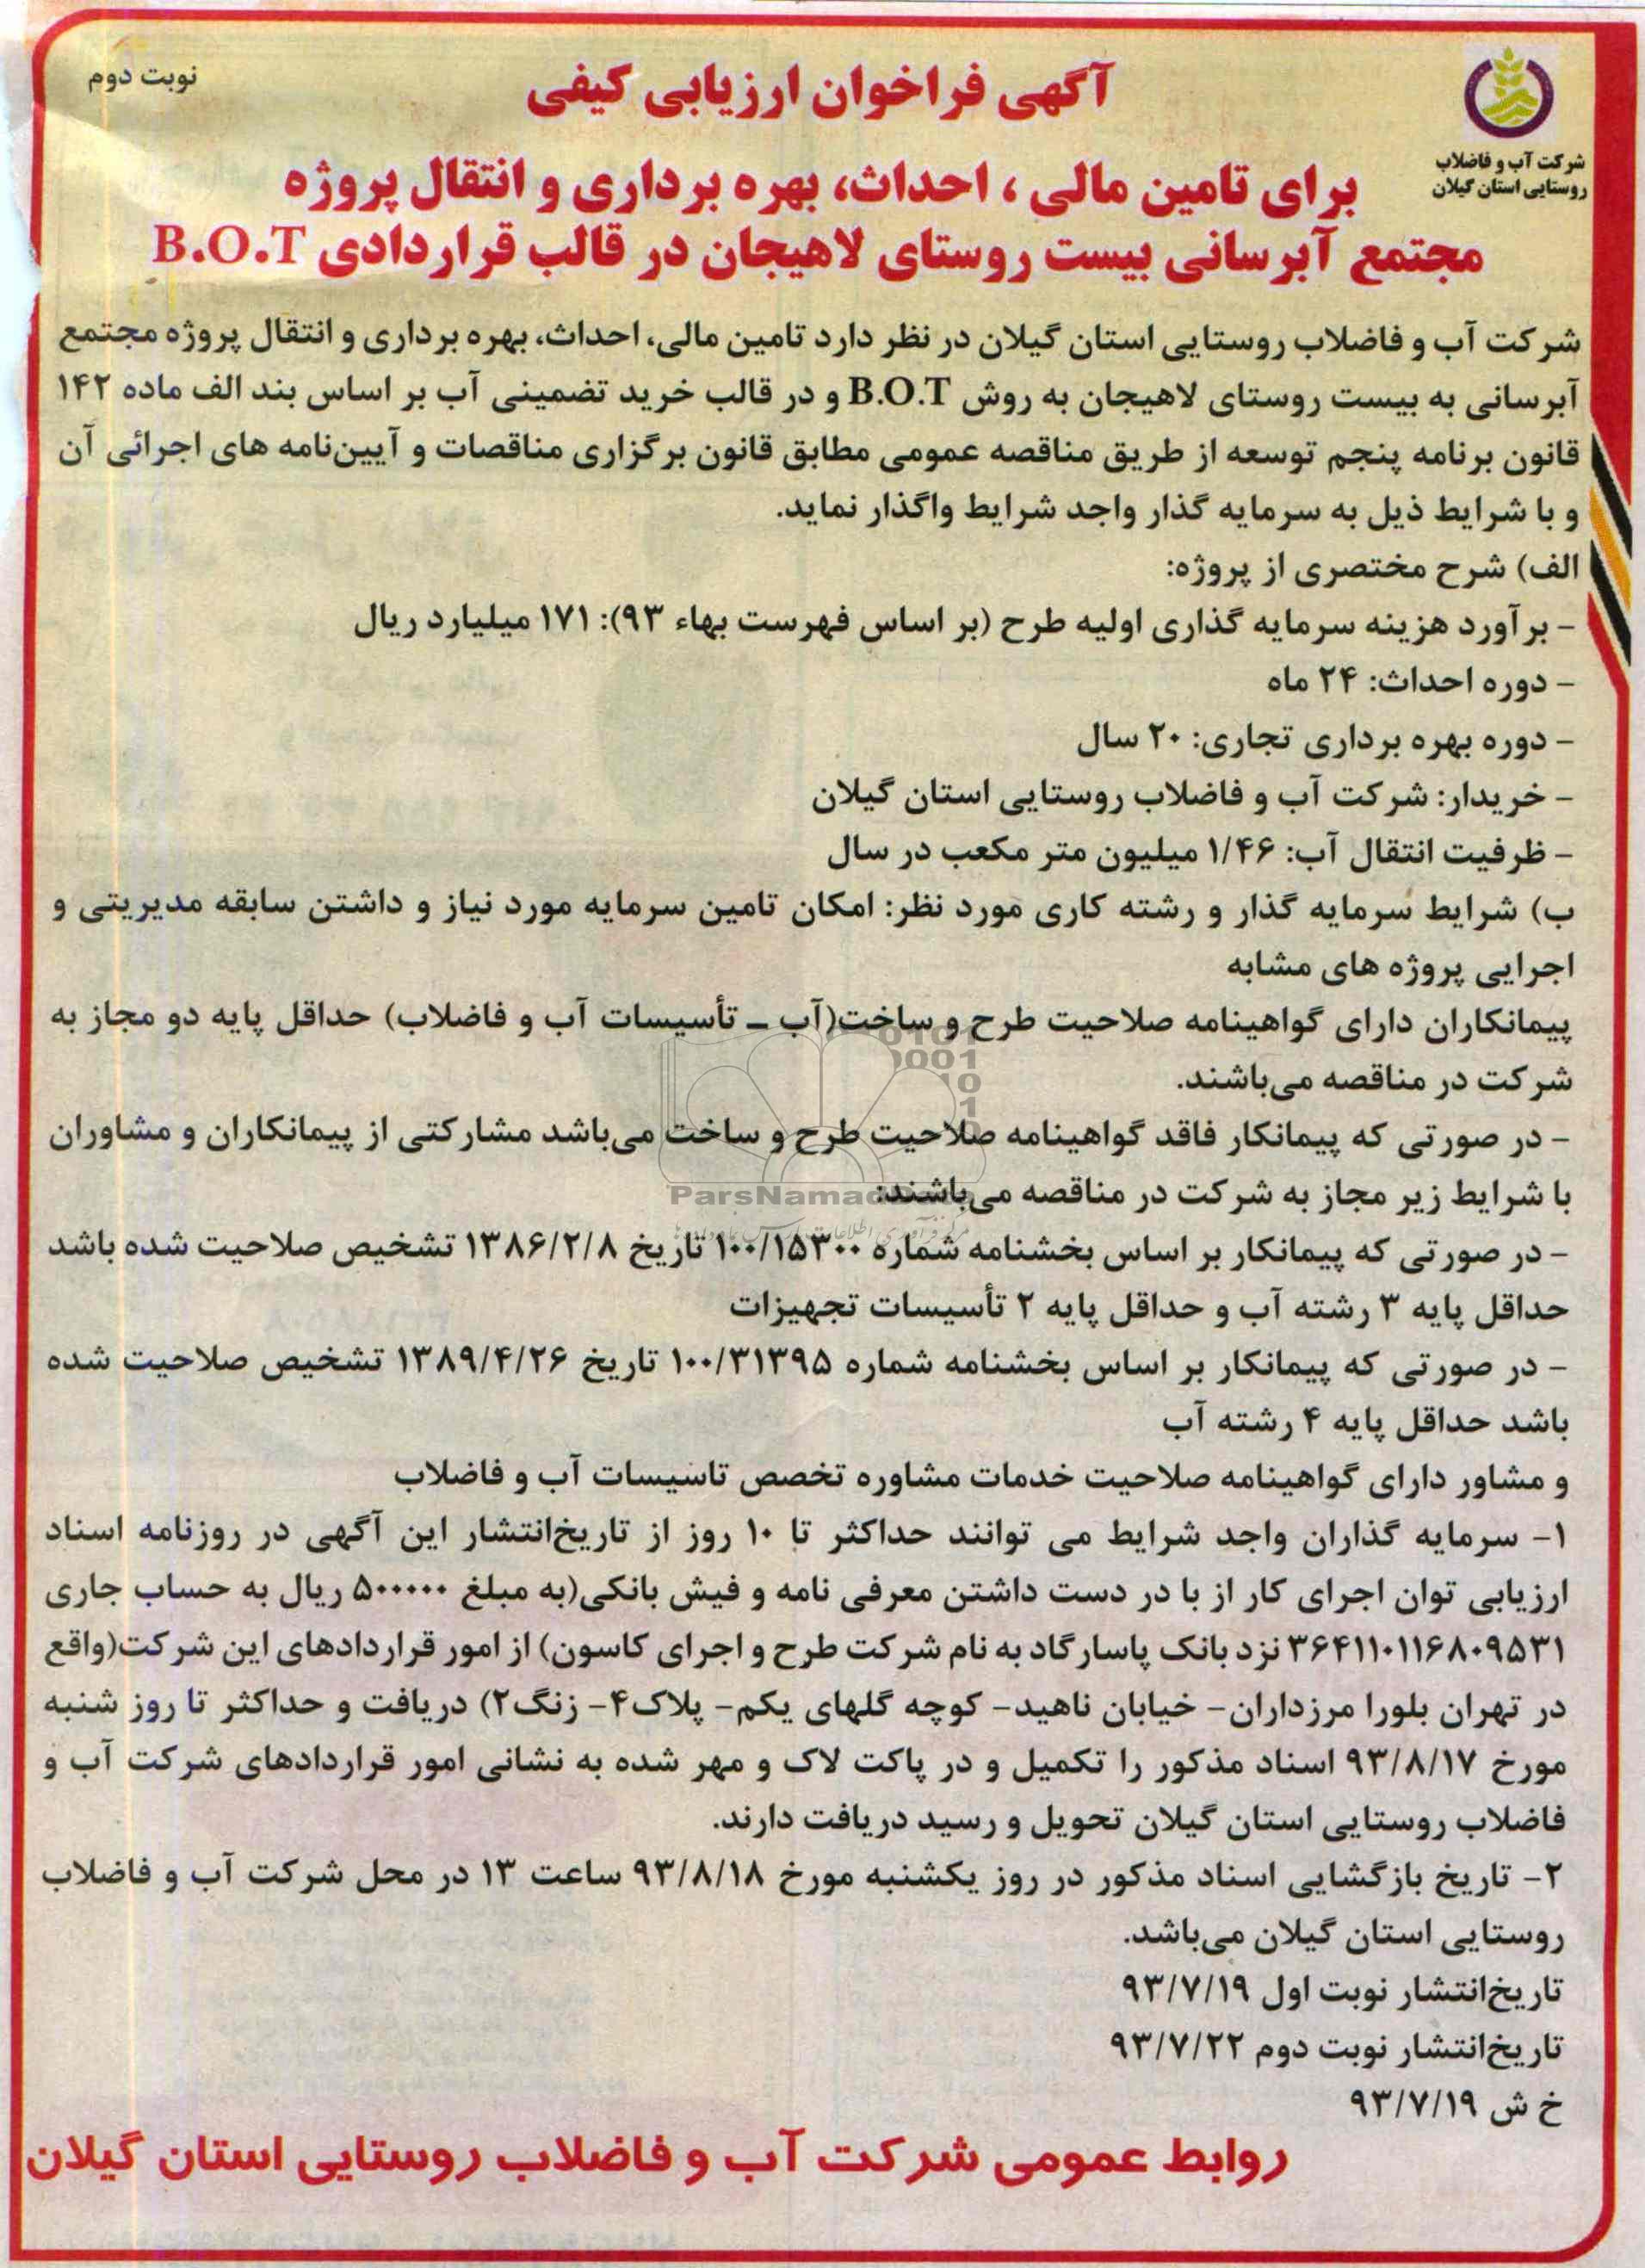 نوبت دوم
شرکت آب و فاضلاب
روستایی استان گیلان
آگهی فراخوان ارزیابی کیفی
برای تامین مالی ، احداث، بهره برداری و انتقال پروژه
مجتمع آبرسانی بیست روستای لاهیجان در قالب قراردادی B.O.T
شرکت آب و فاضلاب روستایی استان گیلان در نظر دارد تامین مالی، احداث، بهره برداری و انتقال پروژه مجتمع
آبرسانی به بیست روستای لاهیجان به روش B.O.T و در قالب خرید تضمینی آب بر اساس بند الف ماده ۱۴۲
قانون برنامه پنجم توسعه از طریق مناقصه عمومی مطابق قانون برگزاری مناقصات و آیین‌نامه های اجرائی آن
و با شرایط ذیل به سرمایه گذار واجد شرایط واگذار نماید.
الف) شرح مختصری از پروژه:
- برآورد هزینه سرمایه گذاری اولیه طرح (بر اساس فهرست بهاء ۹۳): ۱۷۱ میلیارد ریال
- دوره احداث: ۲۴ ماه
- دوره بهره برداری تجاری: ۲۰ سال
- خریدار: شرکت آب و فاضلاب روستایی استان گیلان
- ظرفیت انتقال آب: ۱/۴۶ میلیون متر مکعب در سال
ب) شرایط سرمایه گذار و رشته کاری مورد نظر: امکان تامین سرمایه مورد نیاز و داشتن سابقه مدیریتی و
اجرایی پروژه های مشابه
پیمانکاران دارای گواهینامه صلاحیت طرح و ساخت(آب ـ تأسیسات آب و فاضلاب) حداقل پایه دو مجاز به
شرکت در مناقصه می‌باشند.
- در صورتی که پیمانکار فاقد گواهینامه صلاحیت طرح و ساخت می‌باشد مشارکتی از پیمانکاران و مشاوران
با شرایط زیر مجاز به شرکت در مناقصه می‌باشند:
ParsNamad
- در صورتی که پیمانکار بر اساس بخشنامه شماره ۱۰۰/۱۵۳۰۰ تاریخ ۱۳۸۶/۲/۸ تشخیص صلاحیت شده باشد
حداقل پایه ۳ رشته آب و حداقل پایه ۲ تأسیسات تجهیزات
- در صورتی که پیمانکار بر اساس بخشنامه شماره ۱۰۰/۳۱۳۹۵ تاریخ ۱۳۸۹/۴/۲۶ تشخیص صلاحیت شده
باشد حداقل پایه ۴ رشته آب
و مشاور دارای گواهینامه صلاحیت خدمات مشاوره تخصص تاسیسات آب و فاضلاب
۱- سرمایه گذاران واجد شرایط می توانند حداکثر تا ۱۰ روز از تاریخ‌انتشار این آگهی در روزنامه اسناد
ارزیابی توان اجرای کار از با در دست داشتن معرفی نامه و فیش بانکی(به مبلغ ۵۰۰۰۰۰ ریال به حساب جاری
۳۶۴۱۱۰۱۱۶۸۰۹۵۳۱ نزد بانک پاسارگاد به نام شرکت طرح و اجرای کاسون) از امور قراردادهای این شرکت(واقع
در تهران بلورا مرزداران- خیابان ناهید- کوچه گلهای یکم- پلاک۴- زنگ۲) دریافت و حداکثر تا روز شنبه
مورخ ۹۳/۸/۱۷ اسناد مذکور را تکمیل و در پاکت لاک و مهر شده به نشانی امور قراردادهای شرکت آب و
فاضلاب روستایی استان گیلان تحویل و رسید دریافت دارند.
۲- تاریخ بازگشایی اسناد مذکور در روز یکشنبه مورخ ۹۳/۸/۱۸ ساعت ۱۳ در محل شرکت آب و فاضلاب
روستایی استان گیلان می‌باشد.
تاریخ‌انتشار نوبت اول ۹۳/۷/۱۹
تاریخ‌انتشار نوبت دوم ۹۳/۷/۲۲
خ ش ۹۳/۷/۱۹
روابط عمومی شرکت آب و فاضلاب روستایی استان گیلان